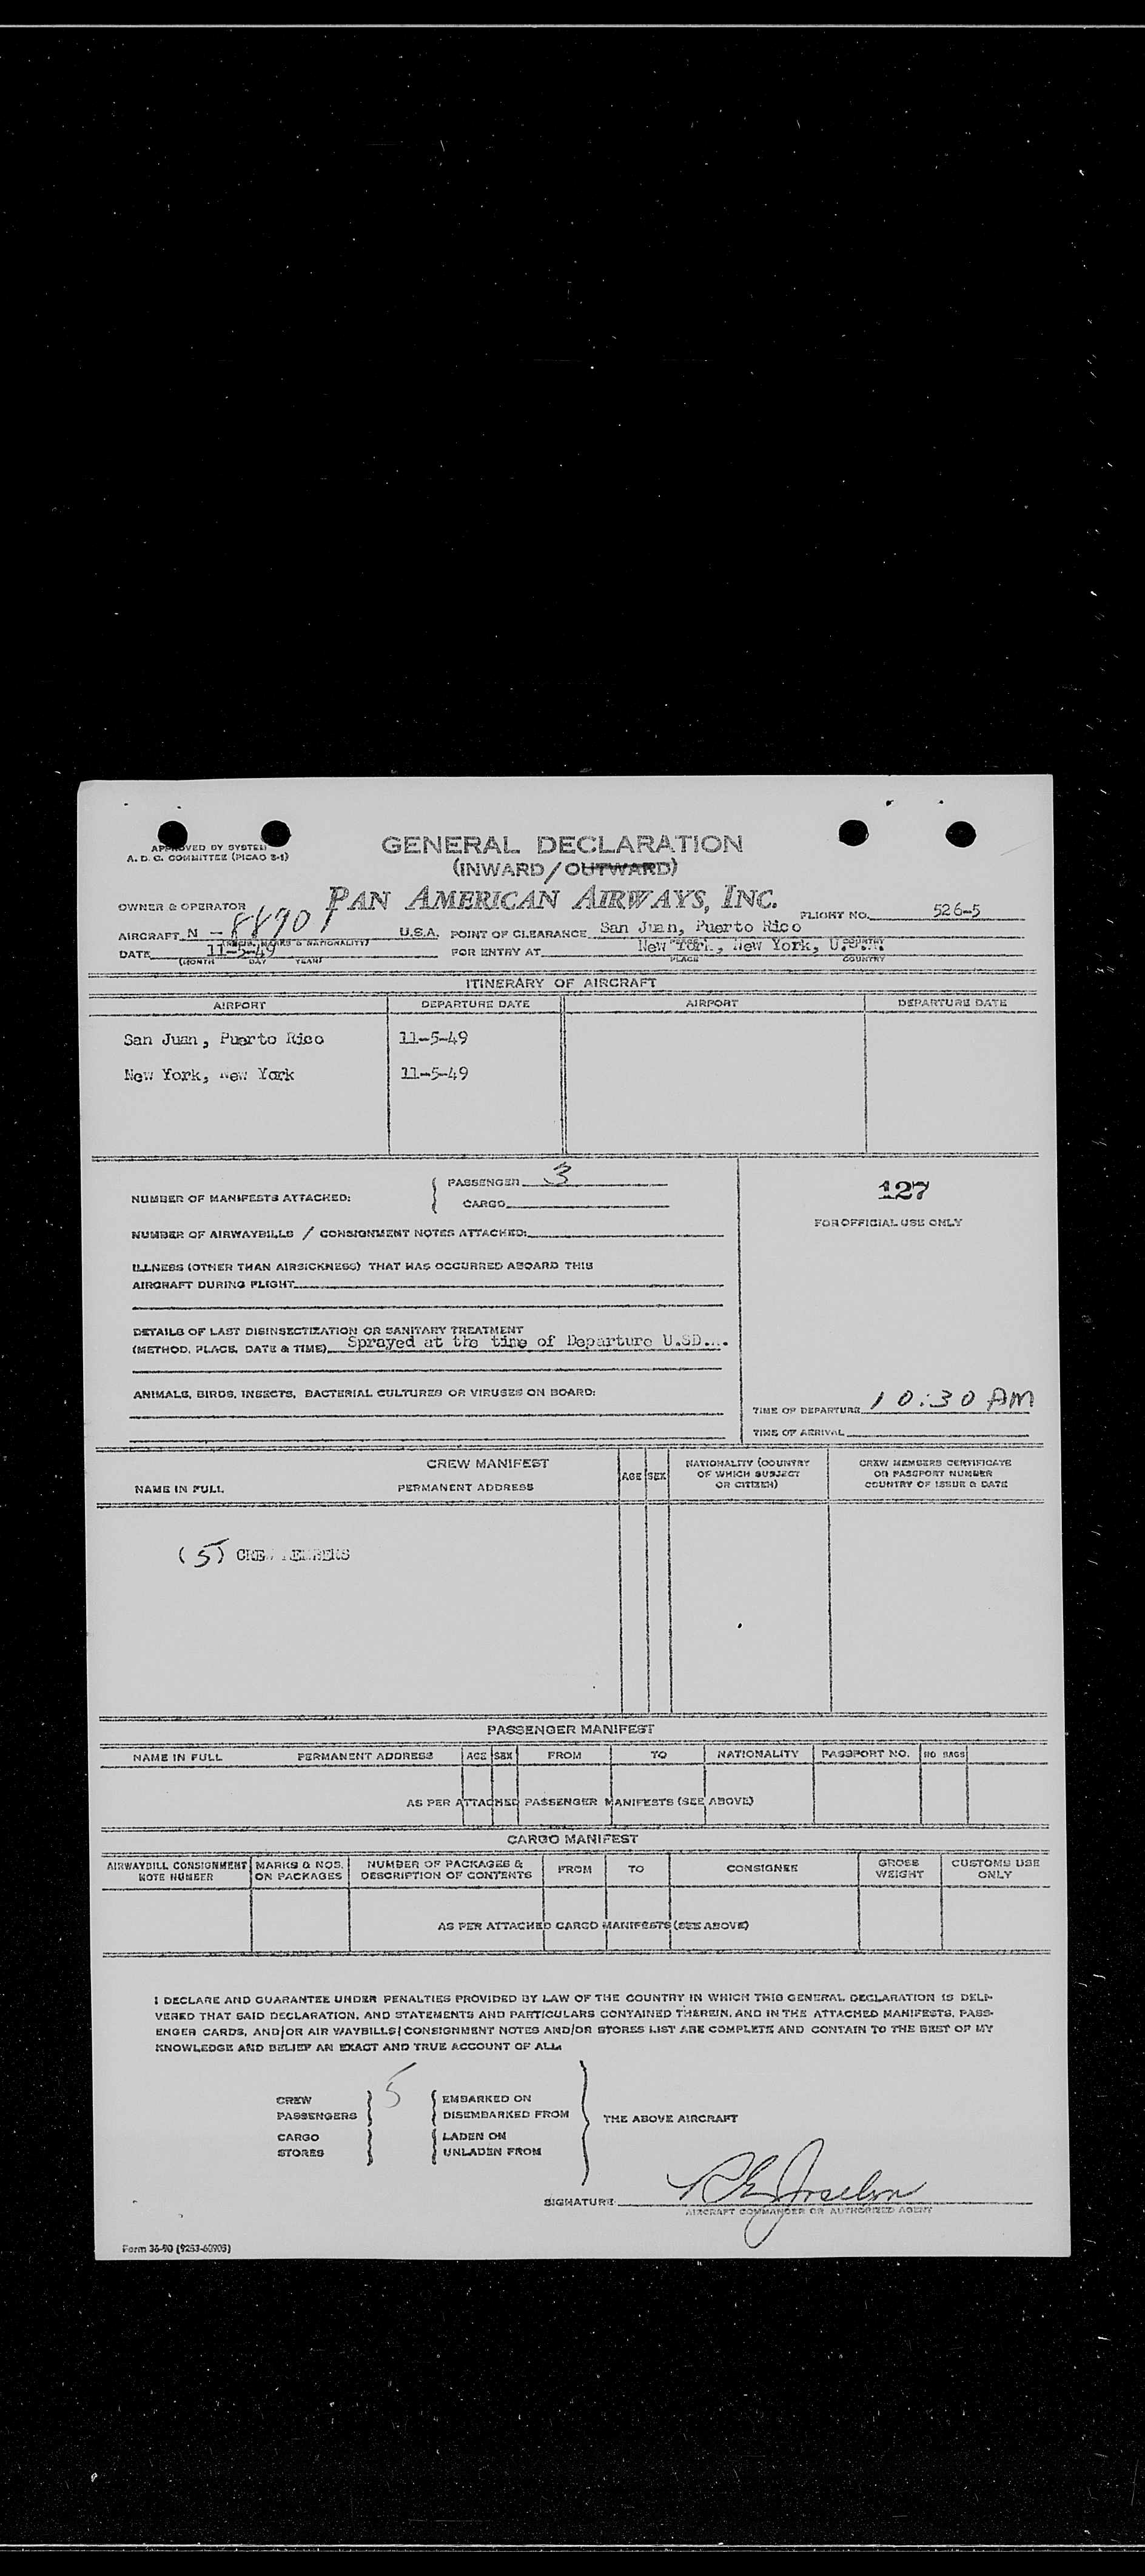 APPROVED BY SYSTEM
A. D. C. COMMITTEE (PICAO 2-1)
GENERAL DECLARATION
(INWARD/OUTWARD)
OWNER & OPERATOR PAN AMERICAN AIRWAYS, INC.
FLIGHT NO. 526-5
AIRCRAFT N - 88901 U.S.A. POINT OF CLEARANCE San Juan, Puerto Rico
(TREAS. MARKS & NATIONALITY) PLACE COUNTRY
DATE 11-5-49 FOR ENTRY AT New York, New York, U.S.A.
(MONTH DAY YEAR) PLACE COUNTRY
ITINERARY OF AIRCRAFT
AIRPORT DEPARTURE DATE AIRPORT DEPARTURE DATE
San Juan, Puerto Rico 11-5-49
New York, New York 11-5-49
NUMBER OF MANIFESTS ATTACHED: PASSENGER 3
CARGO
127
FOR OFFICIAL USE ONLY
NUMBER OF AIRWAYBILLS / CONSIGNMENT NOTES ATTACHED:
ILLNESS (OTHER THAN AIRSICKNESS) THAT HAS OCCURRED ABOARD THIS
AIRCRAFT DURING FLIGHT
DETAILS OF LAST DISINSECTIZATION OR SANITARY TREATMENT
(METHOD, PLACE, DATE & TIME) Sprayed at the time of Departure U.SD...
ANIMALS, BIRDS, INSECTS, BACTERIAL CULTURES OR VIRUSES ON BOARD:
TIME OF DEPARTURE 10:30 AM
TIME OF ARRIVAL
CREW MANIFEST
NAME IN FULL PERMANENT ADDRESS AGE SEX NATIONALITY (COUNTRY OF WHICH SUBJECT OR CITIZEN) CREW MEMBERS CERTIFICATE OR PASSPORT NUMBER COUNTRY OF ISSUE & DATE
(5) CREW MEMBERS
PASSENGER MANIFEST
NAME IN FULL PERMANENT ADDRESS AGE SEX FROM TO NATIONALITY PASSPORT NO. NO BAGS
AS PER ATTACHED PASSENGER MANIFESTS (SEE ABOVE)
CARGO MANIFEST
AIRWAYBILL CONSIGNMENT NOTE NUMBER MARKS & NOS. ON PACKAGES NUMBER OF PACKAGES & DESCRIPTION OF CONTENTS FROM TO CONSIGNEE GROSS WEIGHT CUSTOMS USE ONLY
AS PER ATTACHED CARGO MANIFESTS (SEE ABOVE)
I DECLARE AND GUARANTEE UNDER PENALTIES PROVIDED BY LAW OF THE COUNTRY IN WHICH THIS GENERAL DECLARATION IS DELI-
VERED THAT SAID DECLARATION, AND STATEMENTS AND PARTICULARS CONTAINED THEREIN, AND IN THE ATTACHED MANIFESTS, PASS-
ENGER CARDS, AND/OR AIR WAYBILLS/CONSIGNMENT NOTES AND/OR STORES LIST ARE COMPLETE AND CONTAIN TO THE BEST OF MY
KNOWLEDGE AND BELIEF AN EXACT AND TRUE ACCOUNT OF ALL
CREW 5 EMBARKED ON
PASSENGERS DISEMBARKED FROM THE ABOVE AIRCRAFT
CARGO LADEN ON
STORES UNLADEN FROM
SIGNATURE
AIRCRAFT COMMANDER OR AUTHORIZED AGENT
Form 36-90 (9253-60903)